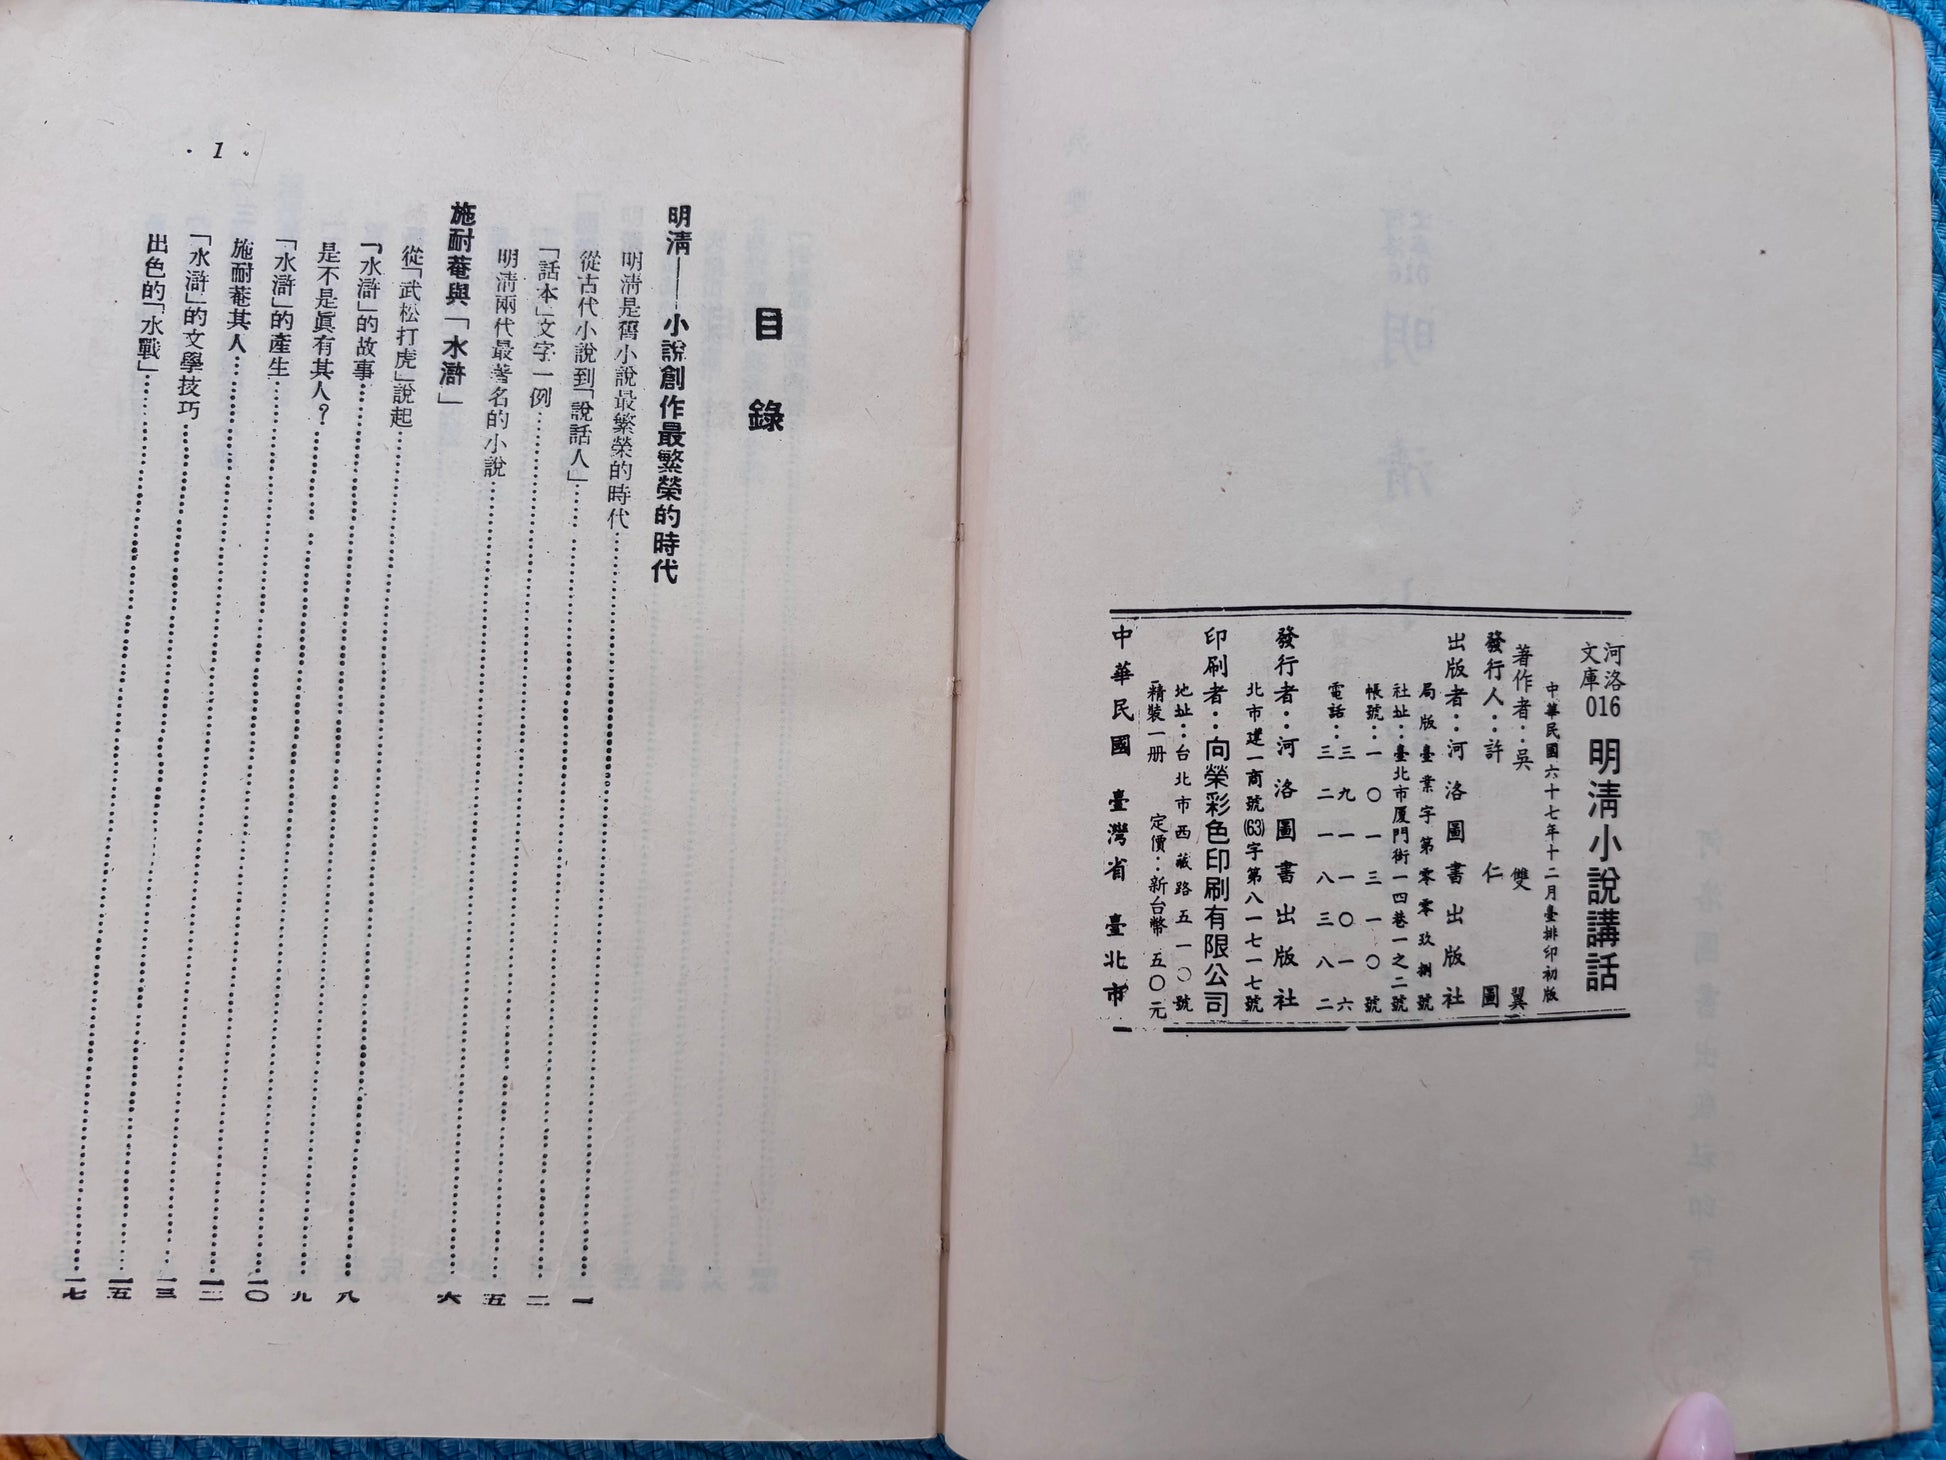 河洛
文庫016
明清小說講話
中華民國六十七年十二月臺排印初版
著作者：吳雙翼
發行人：許仁圖
出版者：河洛圖書出版社
局版臺業字第零零玖捌號
社址：臺北市厦門街一四巷一之二號
帳號：一〇一三一〇號
電話：三九一一〇一六
三二一八三八二
發行者：河洛圖書出版社
北市建一商號(63)字第八一七一七號
印刷者：向榮彩色印刷有限公司
地址：台北市西藏路五一〇號
精裝一册 定價：新台幣五〇元
中華民國臺灣省臺北市
目錄
明清——小說創作最繁榮的時代
明清是舊小說最繁榮的時代……一
從古代小說到「說話人」……二
「話本」文字一例……五
明清兩代最著名的小說……六
施耐菴與「水滸」
從「武松打虎」說起……八
「水滸」的故事……九
是不是眞有其人？……一〇
「水滸」的產生……一二
施耐菴其人……一三
「水滸」的文學技巧……一五
出色的「水戰」……一七
· 1 ·